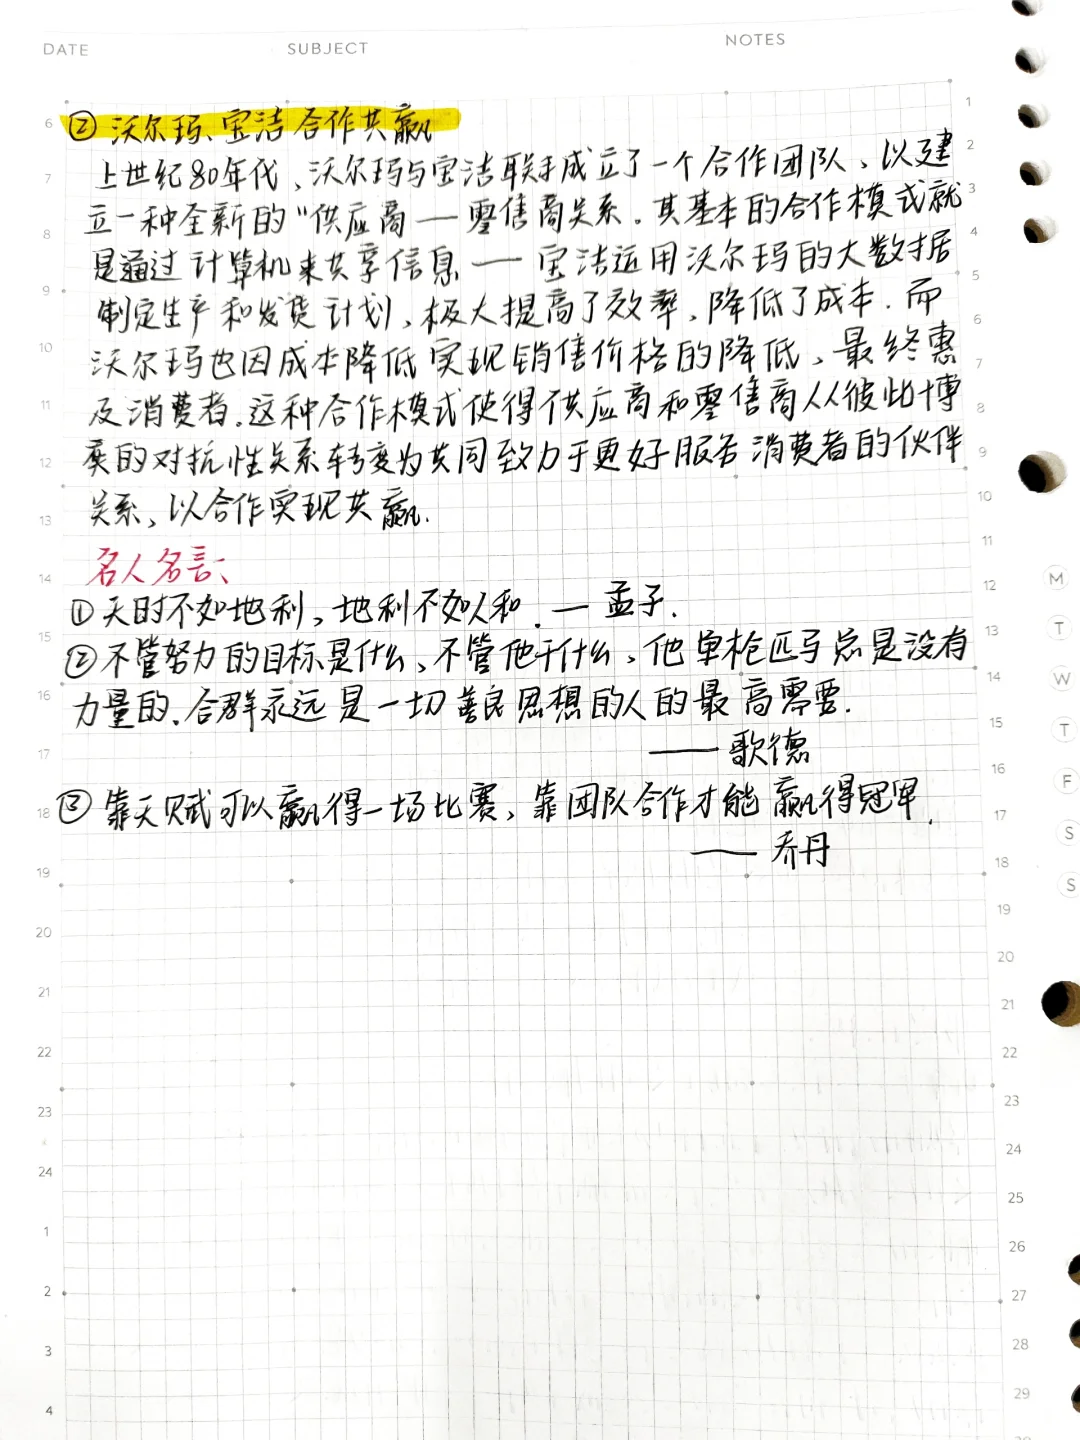 DATE SUBJECT NOTES
② 沃尔玛、宝洁合作共赢
上世纪80年代，沃尔玛与宝洁联手成立了一个合作团队，以建
立一种全新的“供应商—零售商关系。其基本的合作模式就
是通过计算机来共享信息——宝洁运用沃尔玛的大数据
制定生产和发货计划，极大提高了效率，降低了成本．而
沃尔玛也因成本降低实现销售价格的降低，最终惠
及消费者。这种合作模式使得供应商和零售商从彼此博
奕的对抗性关系转变为共同致力于更好服务消费者的伙伴
关系，以合作实现共赢．
名人名言：
①天时不如地利，地利不如人和．—孟子．
②不管努力的目标是什么，不管他干什么，他单枪匹马总是没有
力量的．合群永远是一切善良思想的人的最高需要．
——歌德
③靠天赋可以赢得一场比赛，靠团队合作才能赢得冠军．
——乔丹
6
7
8
9
10
11
12
13
14
15
16
17
18
19
20
21
22
23
24
1
2
3
4
1
2
3
4
5
6
7
8
9
10
11
12
13
14
15
16
17
18
19
20
21
22
23
24
25
26
27
28
29
M
T
W
T
F
S
S